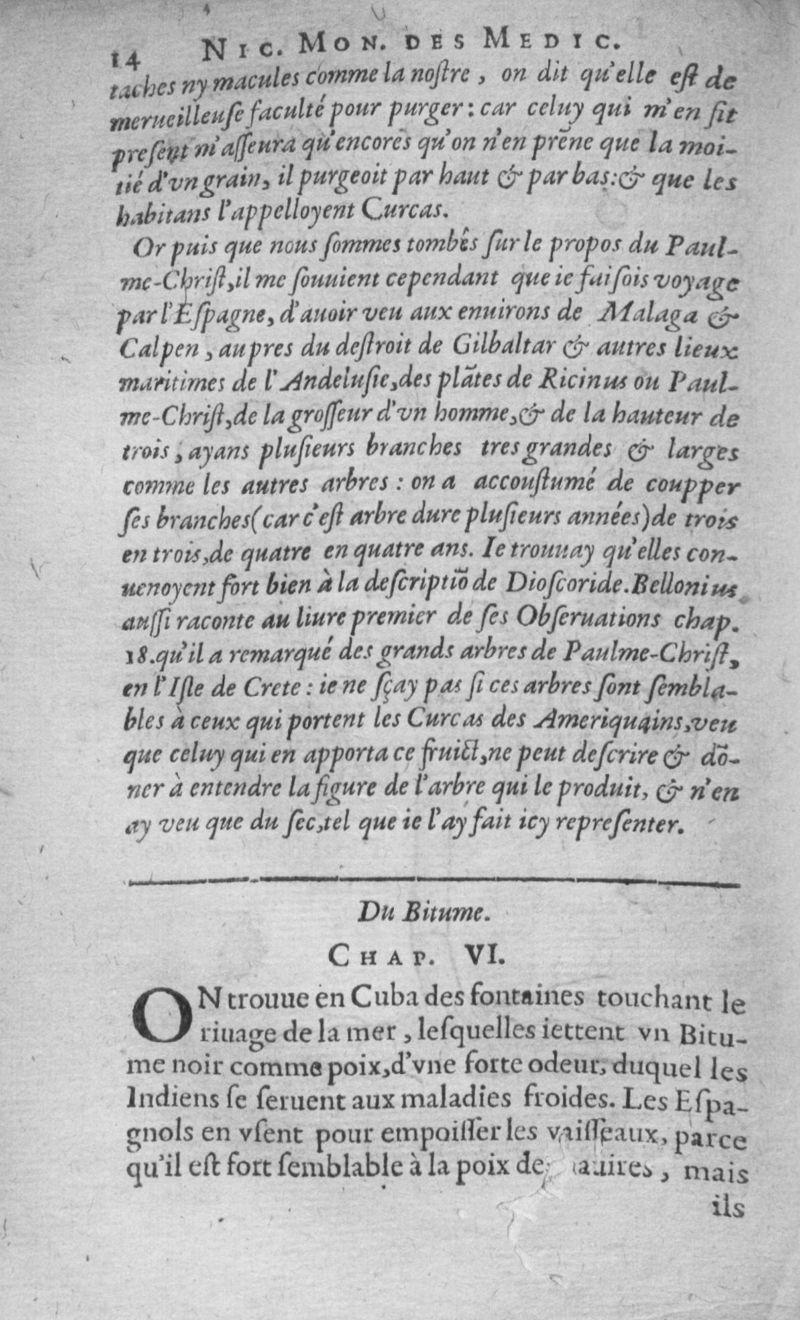 14 NIC. MON. DES MEDIC.
taches ny macules comme la noſtre, on dit qu'elle eſt de
merueilleuſe faculté pour purger: car celuy qui m'en fit
preſent m'aſſeura qu'encores qu'on n'en prẽne que la moi-
tié d'vn grain, il purgeoit par haut & par bas:& que les
habitans l'appelloyent Curcas.
Or puis que nous ſommes tombés ſur le propos du Paul-
me-Chriſt,il me ſouuient cependant que ie faiſois voyage
par l'Eſpagne, d'auoir veu aux enuirons de Malaga &
Calpen, aupres du deſtroit de Gilbaltar & autres lieux
maritimes de l'Andeluſie,des plãtes de Ricinus ou Paul-
me-Chriſt,de la groſſeur d'vn homme,& de la hauteur de
trois, ayans pluſieurs branches tres grandes & larges
comme les autres arbres : on a accouſtumé de coupper
ſes branches(car c'eſt arbre dure pluſieurs années)de trois
en trois,de quatre en quatre ans. Ie trouuay qu'elles con-
uenoyent fort bien à la deſcriptiõ de Dioſcoride.Bellonius
auſſi raconte au liure premier de ſes Obſeruations chap.
18.qu'il a remarqué des grands arbres de Paulme-Chriſt,
en l'Iſle de Crete : ie ne ſçay pas ſi ces arbres ſont ſembla-
bles à ceux qui portent les Curcas des Ameriquains,veu
que celuy qui en apporta ce fruict,ne peut deſcrire & dõ-
ner à entendre la figure de l'arbre qui le produit, & n'en
ay veu que du ſec,tel que ie l'ay fait icy repreſenter.
Du Bitume.
CHAP. VI.
ON trouue en Cuba des fontaines touchant le
riuage de la mer, leſquelles iettent vn Bitu-
me noir comme poix,d'vne forte odeur, duquel les
Indiens ſe ſeruent aux maladies froides. Les Eſpa-
gnols en vſent pour empoiſſer les vaiſſeaux, parce
qu'il eſt fort ſemblable à la poix de , mais
ils